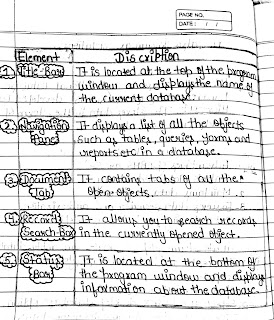 PAGE NO.
DATE: / /
Element Discription
1. Title-Bar It is located at the top of the program
window and displays the name of
the current database.
2. Navigation It displays a list of all the objects
Panel such as tables, queries, forms and
reports etc in a database.
3. Document It contains tabs of all the
Tab open objects.
4. Record It allows you to search records
Search-Box in the currently opened object.
5. Status It is located at the bottom of
Bar the program window and display
information about the database.